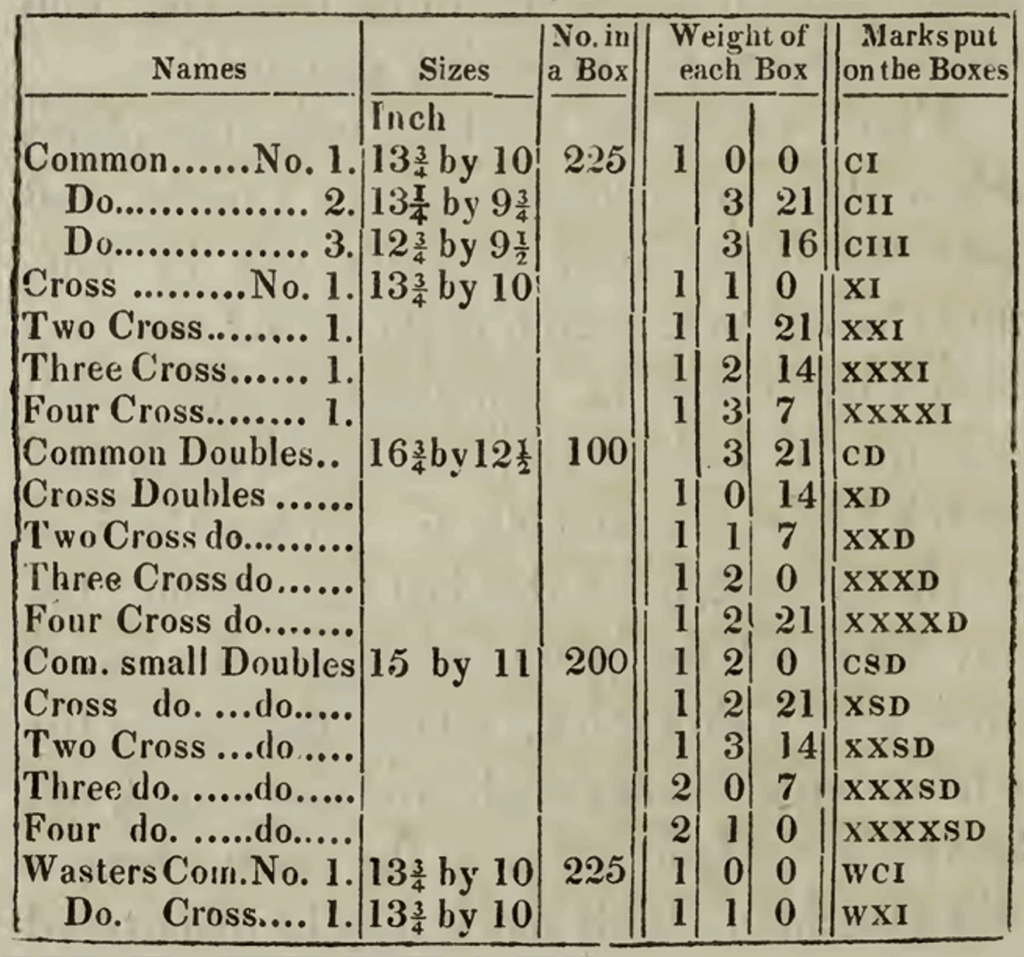 Names Sizes No. in a Box Weight of each Box Marks put on the Boxes
Inch
Common......No. 1. 13¾ by 10 225 1 0 0 CI
Do............... 2. 13¼ by 9¾ 3 21 CII
Do............... 3. 12¾ by 9½ 3 16 CIII
Cross .........No. 1. 13¾ by 10 1 1 0 XI
Two Cross........ 1. 1 1 21 XXI
Three Cross...... 1. 1 2 14 XXXI
Four Cross........ 1. 1 3 7 XXXXI
Common Doubles.. 16¾ by 12½ 100 3 21 CD
Cross Doubles ...... 1 0 14 XD
Two Cross do......... 1 1 7 XXD
Three Cross do...... 1 2 0 XXXD
Four Cross do....... 1 2 21 XXXXD
Com. small Doubles 15 by 11 200 1 2 0 CSD
Cross do. ...do..... 1 2 21 XSD
Two Cross ...do..... 1 3 14 XXSD
Three do. .....do..... 2 0 7 XXXSD
Four do. .....do..... 2 1 0 XXXXSD
Wasters Com. No. 1. 13¾ by 10 225 1 0 0 WCI
Do. Cross.... 1. 13¾ by 10 1 1 0 WXI